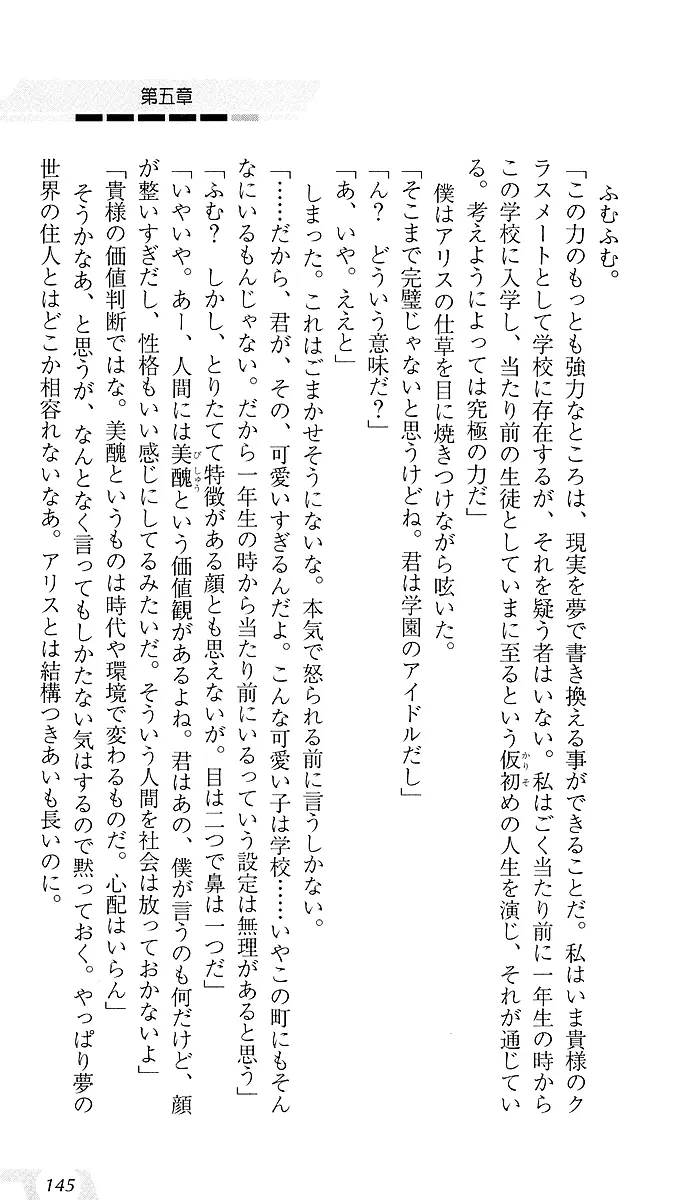 第五章
ふむふむ。
「この力のもっとも強力なところは、現実を夢で書き換える事ができることだ。私はいま貴様のク
ラスメートとして学校に存在するが、それを疑う者はいない。私はごく当たり前に一年生の時から
この学校に入学し、当たり前の生徒としていまに至るという仮初めの人生を演じ、それが通じてい
る。考えようによっては究極の力だ」
僕はアリスの仕草を目に焼きつけながら呟いた。
「そこまで完璧じゃないと思うけどね。君は学園のアイドルだし」
「ん？　どういう意味だ？」
「あ、いや。ええと」
しまった。これはごまかせそうにないな。本気で怒られる前に言うしかない。
「……だから、君が、その、可愛いすぎるんだよ。こんな可愛い子は学校……いやこの町にもそん
なにいるもんじゃない。だから一年生の時から当たり前にいるっていう設定は無理があると思う」
「ふむ？　しかし、とりたてて特徴がある顔とも思えないが。目は二つで鼻は一つだ」
「いやいや。あー、人間には美醜という価値観があるよね。君はあの、僕が言うのも何だけど、顔
が整いすぎだし、性格もいい感じにしてるみたいだ。そういう人間を社会は放っておかないよ」
「貴様の価値判断ではな。美醜というものは時代や環境で変わるものだ。心配はいらん」
そうかなあ、と思うが、なんとなく言ってもしかたない気はするので黙っておく。やっぱり夢の
世界の住人とはどこか相容れないなあ。アリスとは結構つきあいも長いのに。
145